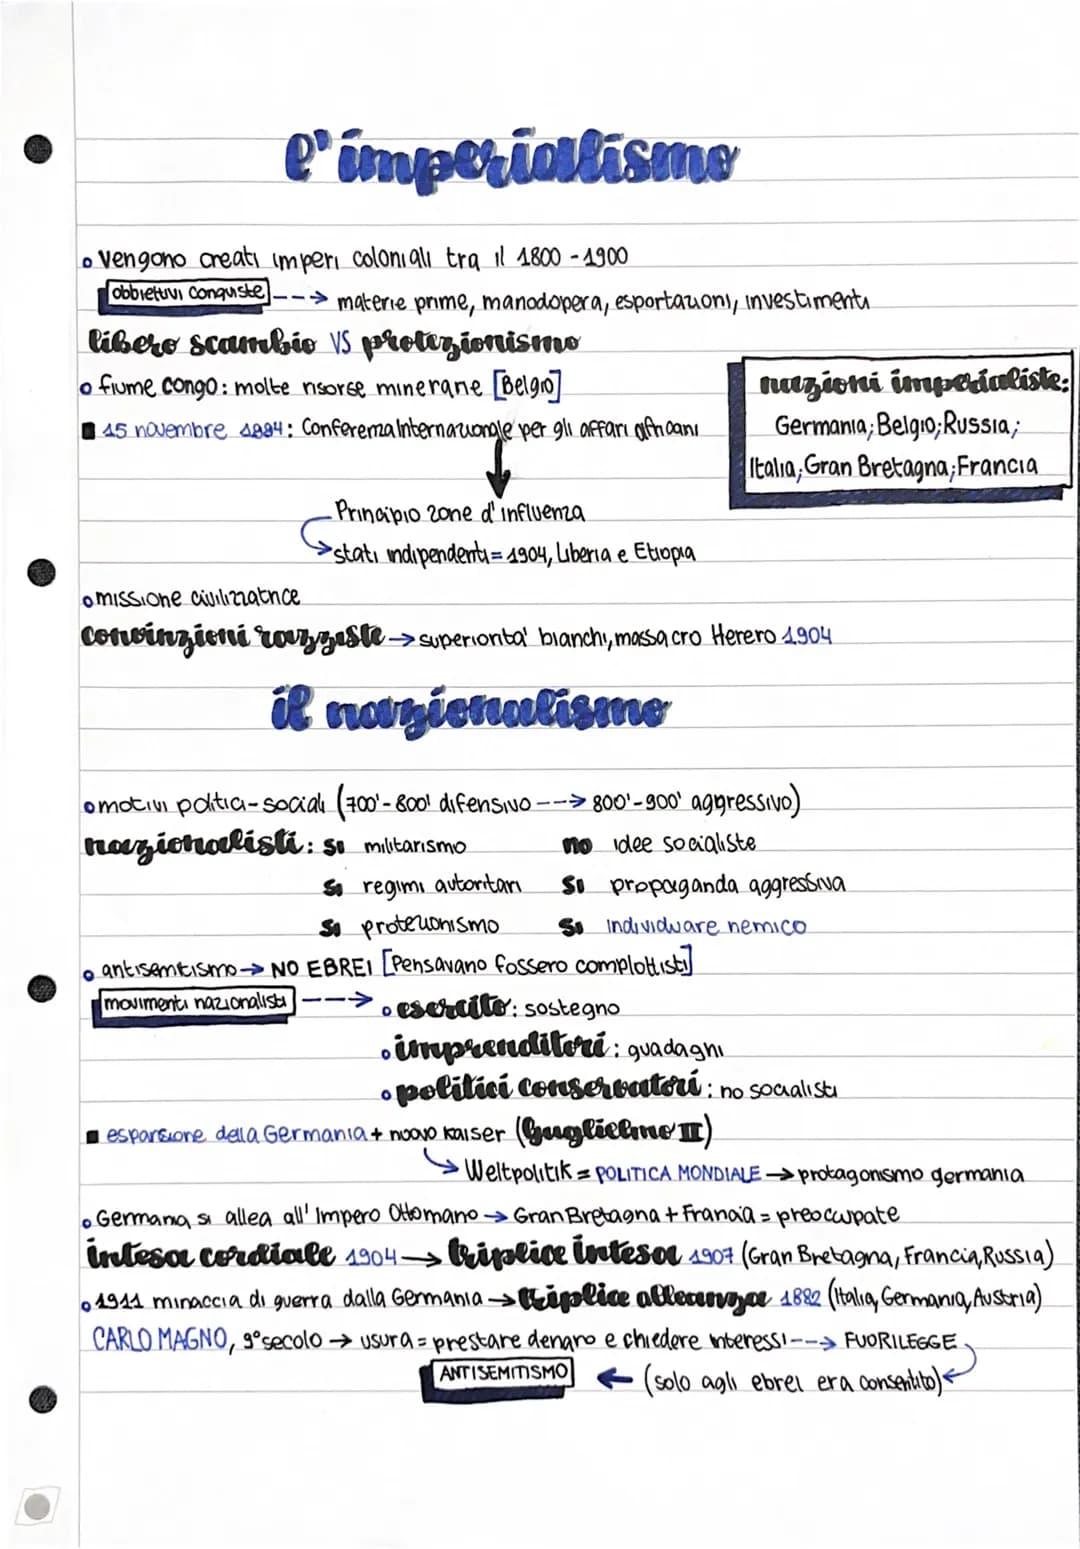 l'imperialismo
o Vengono creati imperi coloniali tra il 1800 - 1900
obbiettivi conquiste ---> materie prime, manodopera, esportazioni, investimenti
libero scambio VS protezionismo
o fiume congo: molte risorse minerarie [Belgio]
nazioni imperialiste:
Germania; Belgio; Russia;
Italia; Gran Bretagna; Francia
■ 15 novembre 1884: Conferenza Internazionale per gli affari africani
↓
Principio zone d'influenza
→ stati indipendenti = 1904, Liberia e Etiopia
o missione civilizzatrice
convinzioni razziste → superiorita' bianchi, massacro Herero 1904
il nazionalismo
o motivi politici-sociali (700'-800' difensivo ---> 800'-900' aggressivo)
nazionalisti: si militarismo no idee socialiste
si regimi autoritari si propaganda aggressiva
si protezionismo si individuare nemico
o antisemitismo → NO EBREI [Pensavano fossero complottisti]
movimenti nazionalisti ---> o esercito: sostegno
o imprenditori: guadagni
o politici conservatori: no socialisti
■ espansione della Germania + nuovo kaiser (Guglielmo II)
→ Weltpolitik = POLITICA MONDIALE → protagonismo germania
o Germania si allea all'Impero Ottomano → Gran Bretagna + Francia = preoccupate
intesa cordiale 1904 → triplice intesa 1907 (Gran Bretagna, Francia, Russia)
o 1911 minaccia di guerra dalla Germania → triplice alleanza 1882 (Italia, Germania, Austria)
CARLO MAGNO, 9° secolo → usura = prestare denaro e chiedere interessi --> FUORILEGGE
ANTISEMITISMO ← (solo agli ebrei era consentito)